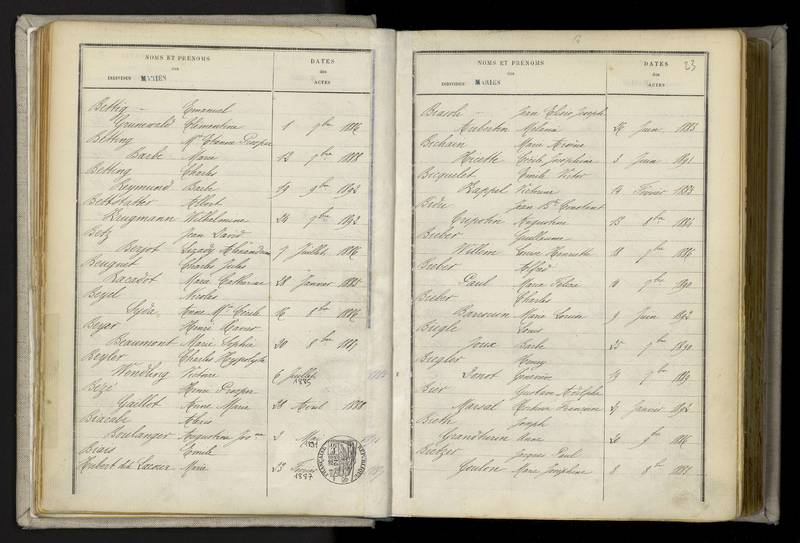 NOMS ET PRÉNOMS
des
INDIVIDUS MARIÉS
DATES
des
ACTES
Bettig - Emanuel
Grunewald Clémentine 1 7bre 1886
Betting Mce Etienne Prosper
Barbe Marie 12 7bre 1888
Betting Charles
Reymund Barbe 19 9bre 1892
Bettstatter Albert
Krugmann Wilhelmine 24 7bre 1892
Betz Jean David
Bergot Alexandrine 7 Juillet 1886
Beuguet Charles Jules
Racadot Marie Catherine 28 Janvier 1885
Beyel Nicolas
Syda Anne Mie Cécile 16 8bre 1886
Beyer Henri Xavier
Beaumont Marie Sophie 20 8bre 1887
Beyler Charles Hyppolyte
Wendling Victoire 6 Juillet
1885
Bezé Henri Prosper
Gaillot Anne Marie 28 Avril 1888
Biacabe Alexis
Boulanger Augustine Jos
3 Mai
1891
Biais Emile
Hubert dit Lacour Marie 23 Février
1887
NOMS ET PRÉNOMS
des
INDIVIDUS MARIÉS
DATES
des
ACTES
23
Jean Elise Joseph
Aubertin Mélanie 27 Juin 1885
Bichain Marie Arsène
Hicette Cécile Joséphine 3 Juin 1891
Bicquelet Emile Victor
Kappel Victorine 14 Février 1885
Jean Bte Constant
Crepatin Augustine 15 8bre 1884
Bieber Guillaume
Willem Louise Henriette 18 7bre 1886
Bieber Alfred
Paul Marie 7bre 1890
Bieber Charles
Marie Louise 9 Juin 1892
Biegle Louis
Joux Barbe 25 7bre 1890
Biegler
19 7bre 1889
Gustave Adolphe
Marsal Françoise 27 Janvier 1892
Bieth Joseph
Grandthurin Anne 20 9bre 1886
Bietzer Jacques Paul
Goulon Marie Joséphine 8 8bre 1885